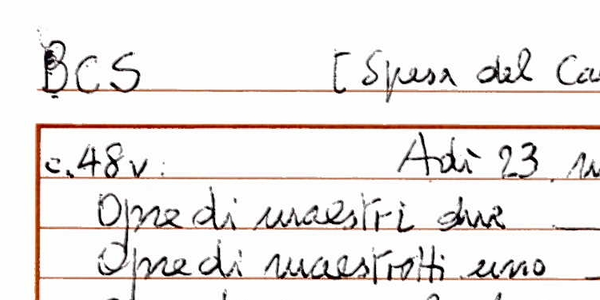 BCS [Spesa del
c.48v. Adì 23
Opre di maestri due
Opre di maestrotti uno